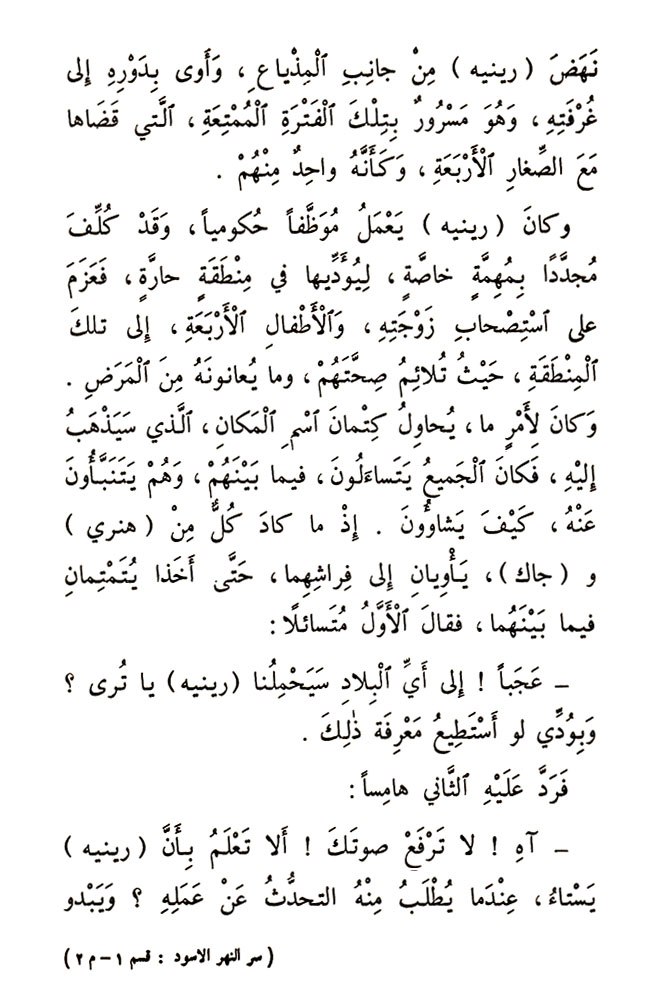 نَهَضَ ( رينيه ) مِنْ جانِبِ ٱلْمِذْياعِ ، وَأَوى بِدَوْرِهِ إِلى
غُرْفَتِهِ ، وَهُوَ مَسْرُورٌ بِتِلْكَ ٱلْفَتْرَةِ ٱلْمُمْتِعَةِ ، ٱلَّتي قَضَاها
مَعَ الصِّغارِ ٱلْأَرْبَعَةِ ، وَكَأَنَّهُ واحِدٌ مِنْهُمْ .
وكانَ ( رينيه ) يَعْمَلُ مُوَظَّفاً حُكومياً ، وَقَدْ كُلِّفَ
مُجدَّدًا بِمُهِمَّةٍ خاصَّةٍ ، لِيُؤَدِّيها في مِنْطَقَةٍ حارَّةٍ ، فَعَزَمَ
على ٱسْتِصْحابِ زَوْجَتِهِ ، وَٱلْأَطْفالِ ٱلْأَرْبَعَةِ ، إِلى تلكَ
ٱلْمِنْطَقَةِ ، حَيْثُ تُلائِمُ صِحَّتَهُمْ ، وما يُعانونَهُ مِنَ ٱلْمَرَضِ .
وَكانَ لِأَمْرٍ ما ، يُحاوِلُ كِتْمانَ ٱسْمِ ٱلْمَكانِ ، ٱلَّذي سَيَذْهَبُ
إِلَيْهِ ، فَكانَ ٱلْجَميعُ يَتَساءَلُونَ ، فيما بَيْنَهُمْ ، وَهُمْ يَتَنَبَّأُونَ
عَنْهُ ، كَيْفَ يَشاؤُونَ . إِذْ ما كادَ كُلٌّ مِنْ ( هنري )
و ( جاك ) ، يَأْوِيانِ إِلى فِراشِهِما ، حَتَّى أَخَذا يُتَمْتِمانِ
فيما بَيْنَهُما ، فقالَ ٱلْأَوَّلُ مُتَسائلًا :
ـ عَجَباً ! إِلى أَيِّ ٱلْبِلادِ سَيَحْمِلُنا (رينيه) يا تُرى ؟
وَبِوُدِّي لو أَسْتَطِيعُ مَعْرِفَة ذٰلِكَ .
فَرَدَّ عَلَيْهِ ٱلثَّاني هامِساً :
ـ آهِ ! لا تَرْفَعْ صوتَكَ ! أَلا تَعْلَمُ بِأَنَّ ( رينيه )
يَسْتاءُ ، عِنْدَما يُطْلَبُ مِنْهُ التحدُّثُ عَنْ عَمَلِهِ ؟ وَيَبْدو
( سر النهر الاسود : قسم ١ – م ٢ )